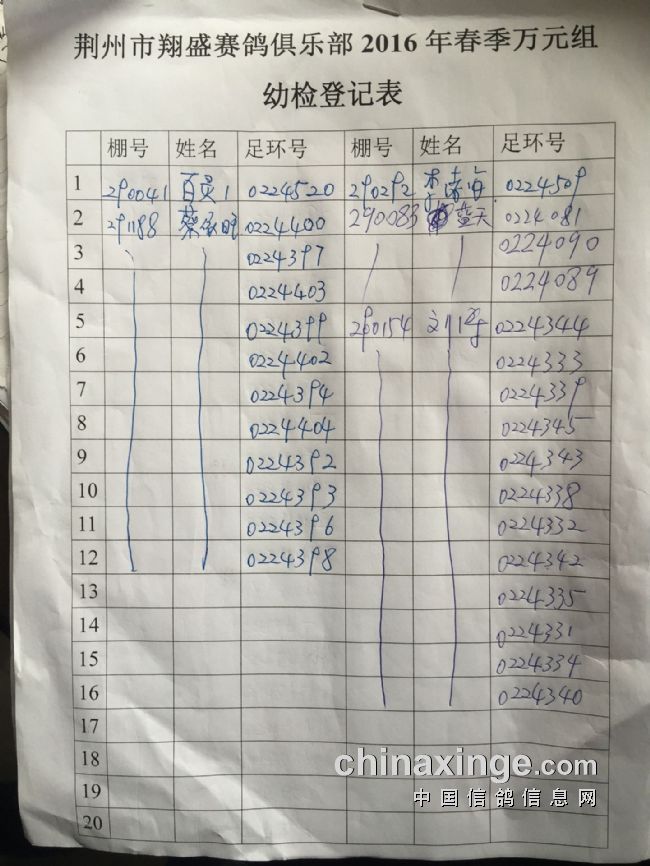 荆州市翔盛赛鸽俱乐部 2016 年春季万元组
幼检登记表
棚号 姓名 足环号 棚号 姓名 足环号
1 290041 0224520 290292 0224509
2 291188 0224400 290083 蓝天 0224081
3 0224397 0224090
4 0224403 0224089
5 0224399 290154 0224344
6 0224402 0224333
7 0224394 0224339
8 0224404 0224345
9 0224392 0224343
10 0224393 0224338
11 0224396 0224332
12 0224398 0224342
13 0224335
14 0224331
15 0224334
16 0224340
17
18
19
20
chinaxinge.com
中国信鸽信息网